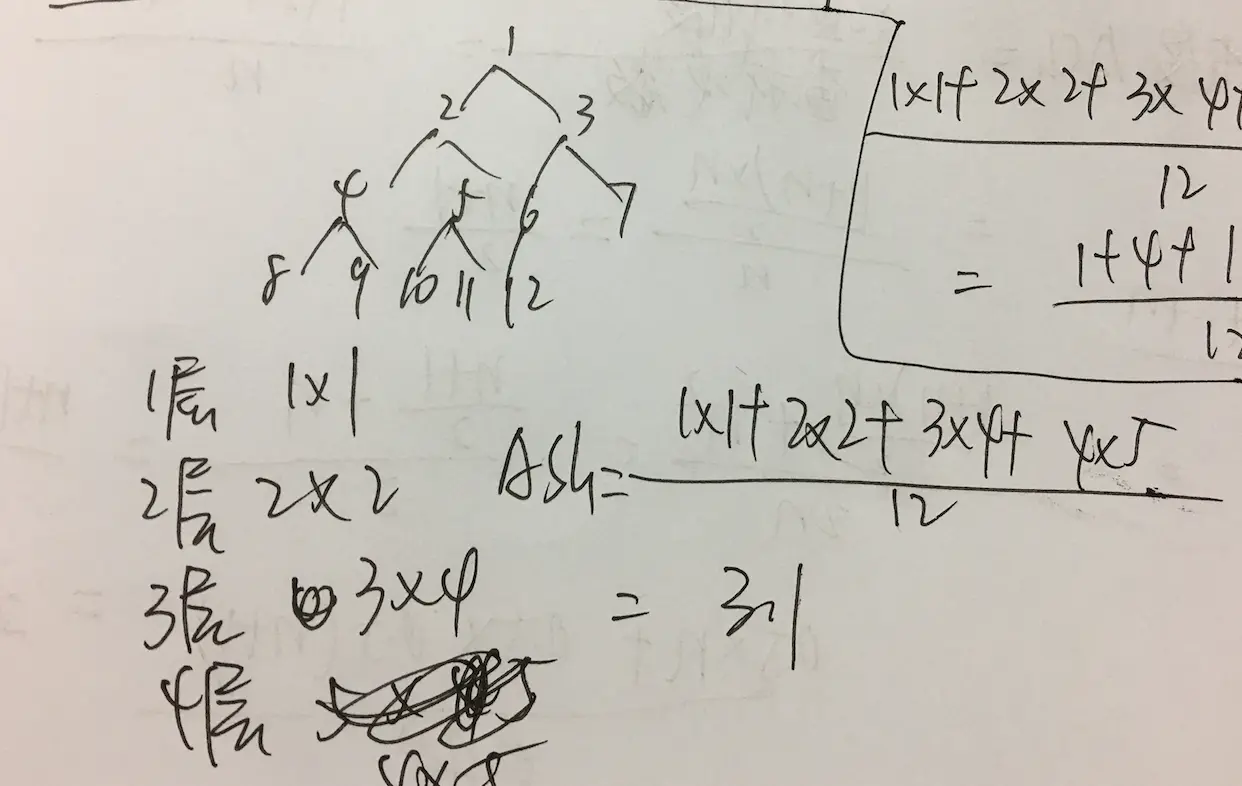 1
2 3
4 5 6 7
8 9 10 11 12
1x1+ 2x2+ 3x4+
12
= 1+4+1
12
1层 1x1
2层 2x2
3层 3x4
4层
ASL= 1x1+ 2x2+ 3x4+ 4x5
12
= 3.1